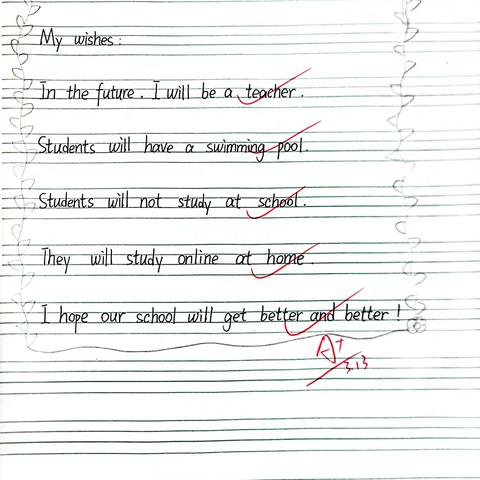 My wishes:
In the future. I will be a teacher.
Students will have a swimming pool.
Students will not study at school.
They will study online at home.
I hope our school will get better and better!
A+
3.13